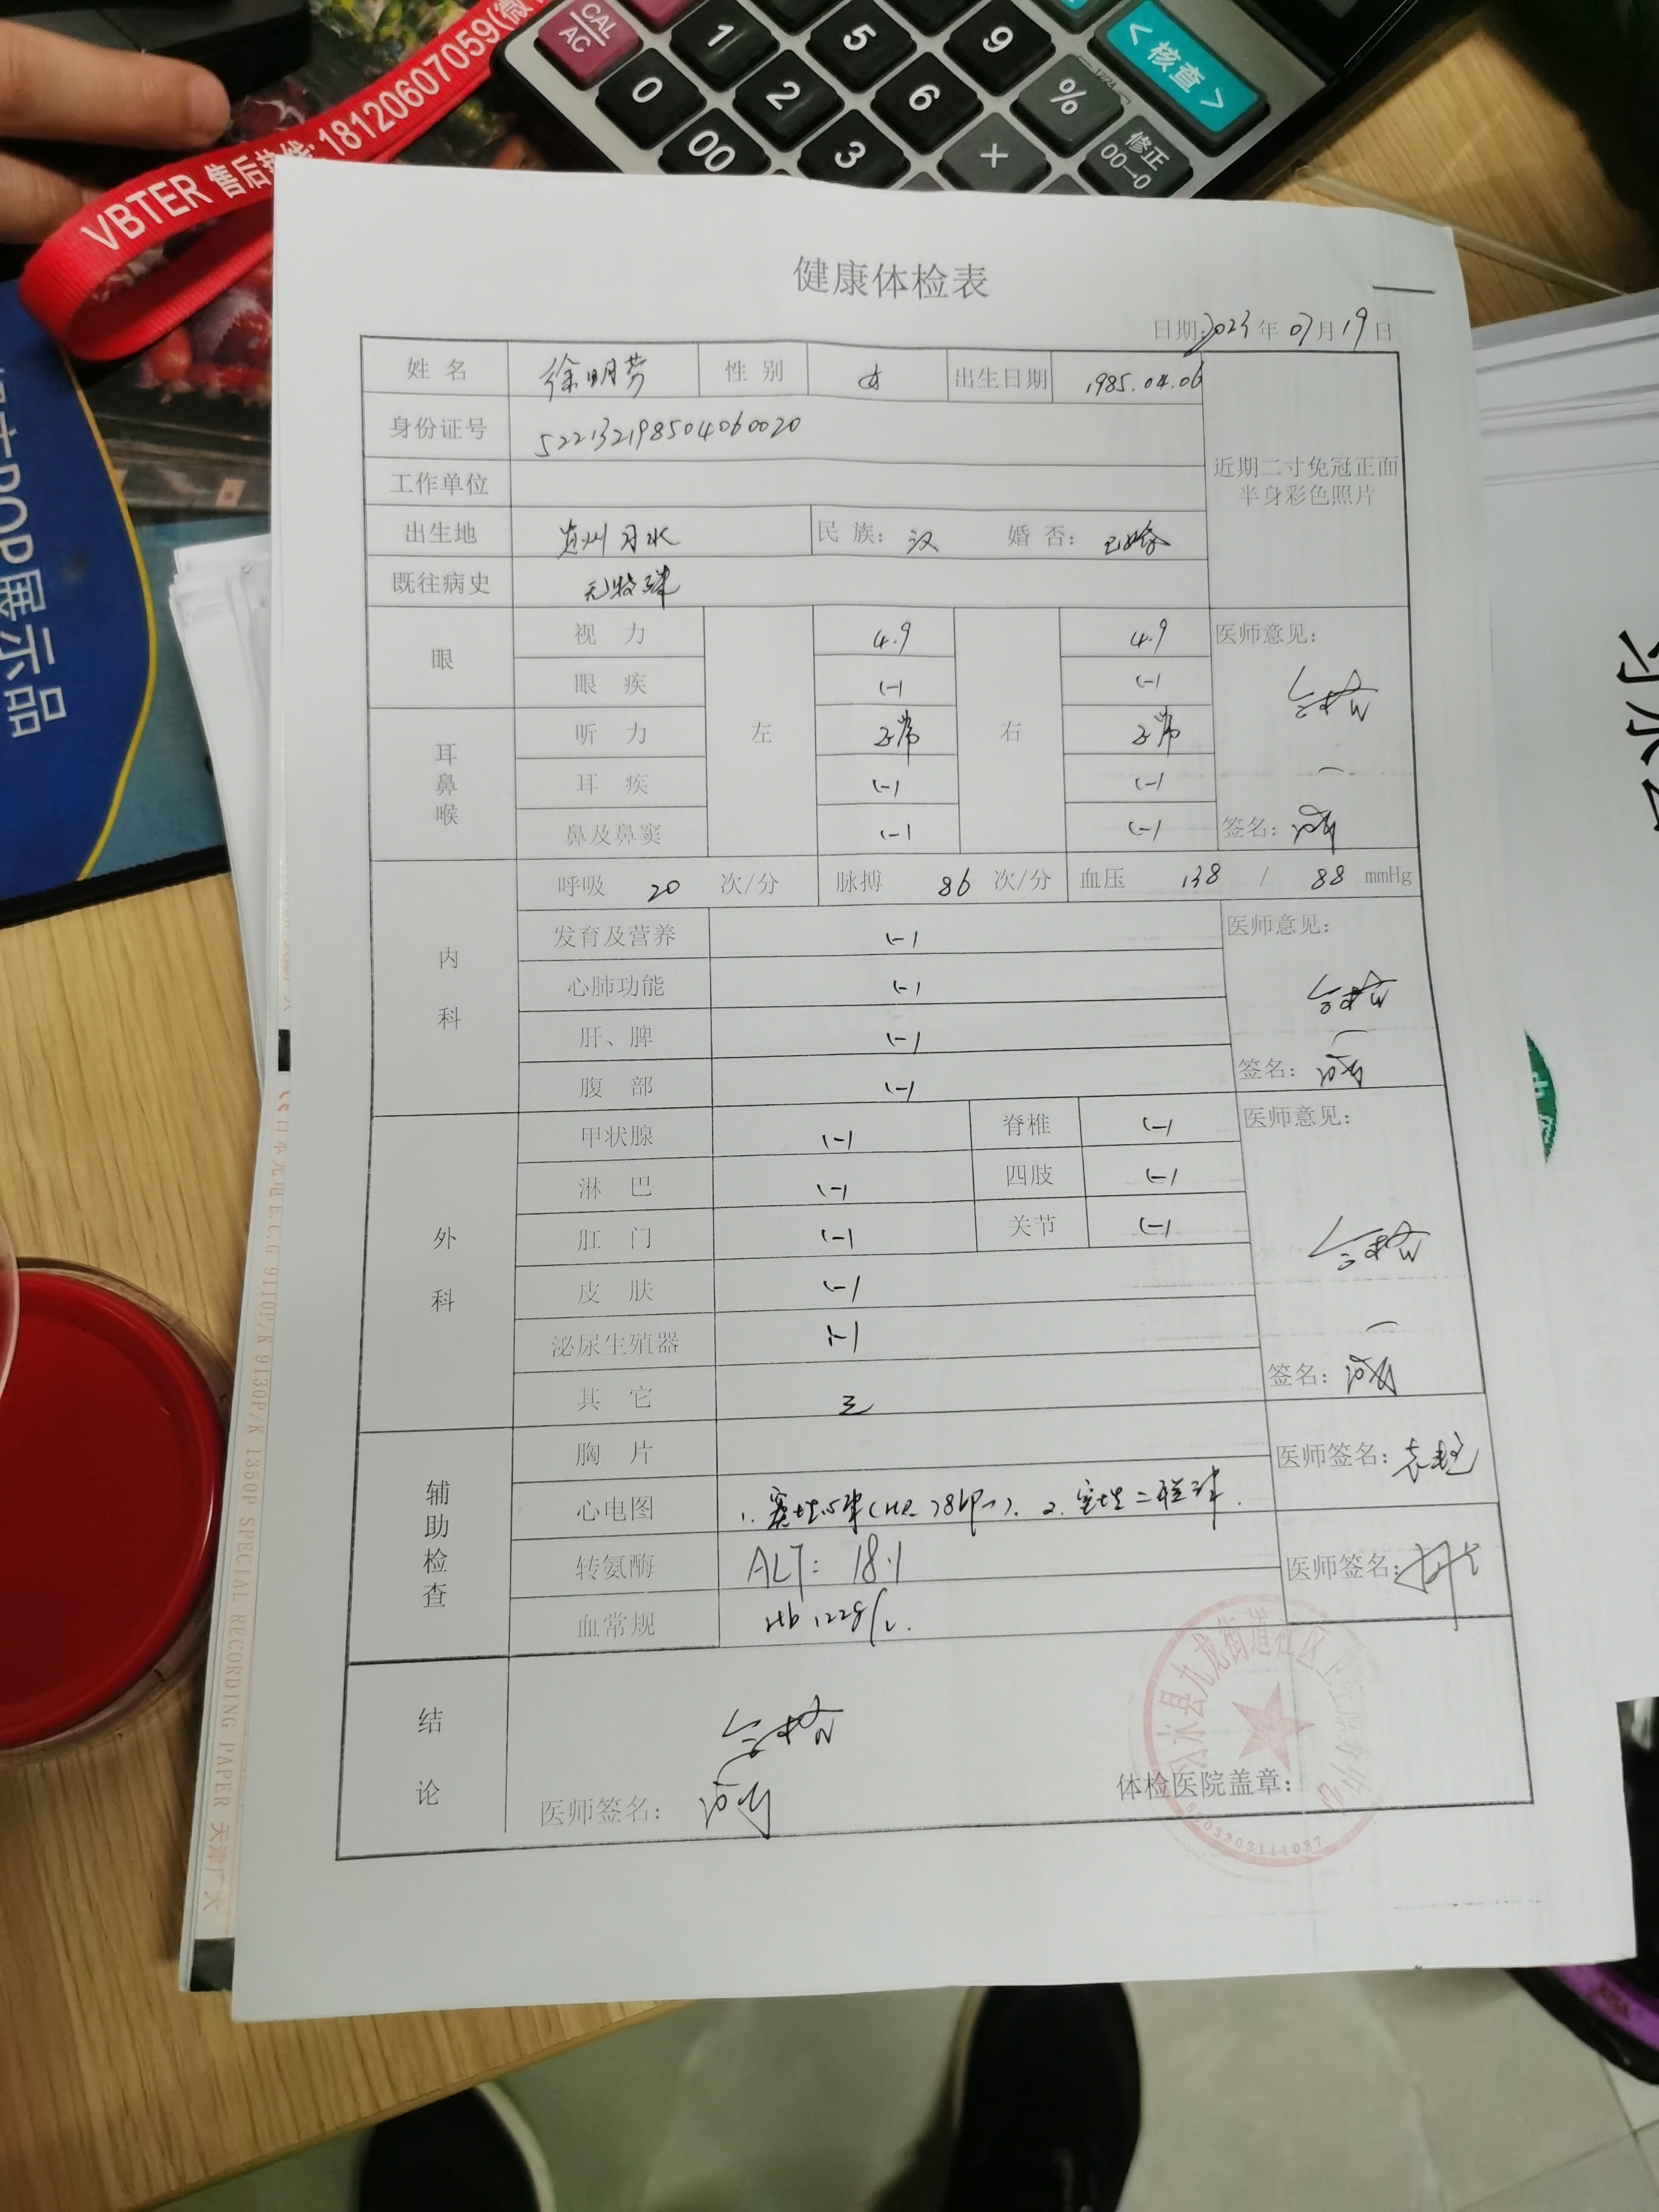 CAL AC 1 5 9 <核查>
0 2 6 %
00 3 + 修正 00→0
VBTER 售后热线: 18120607059(微
POP展示品
健康体检表
日期: 2023年07月19日
姓名 徐明芳 性别 女 出生日期 1985.04.06
身份证号 522132198504060020
近期二寸免冠正面
半身彩色照片
工作单位
出生地 贵州习水 民族: 汉 婚否: 已婚
既往病史 无特殊
眼 视力 左 4.9 右 4.9 医师意见:
眼疾 (-) (-) 合格
耳鼻喉 听力 正常 正常
耳疾 (-) (-)
鼻及鼻窦 (-) (-) 签名:
内科 呼吸 20 次/分 脉搏 86 次/分 血压 138 / 88 mmHg
发育及营养 (-) 医师意见:
心肺功能 (-) 合格
肝、脾 (-)
腹部 (-) 签名:
外科 甲状腺 (-) 脊椎 (-) 医师意见:
淋巴 (-) 四肢 (-)
肛门 (-) 关节 (-) 合格
皮肤 (-)
泌尿生殖器 (-)
其它 无 签名:
辅助检查 胸片 医师签名:
心电图 1. 2.
转氨酶 ALT: 18.1 医师签名:
血常规 Hb 122g/L.
结论 合格
医师签名:
体检医院盖章:
习水县九龙街道社区卫生服务中心
9110P/K 9130P/K 1350P SPECIAL RECORDING PAPER 天津广大